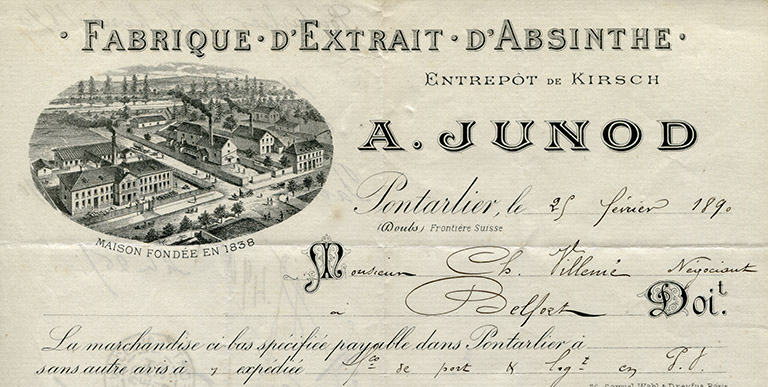 · FABRIQUE · D'EXTRAIT · D'ABSINTHE ·
ENTREPÔT DE KIRSCH
A. JUNOD
MAISON FONDÉE EN 1838
Pontarlier, le 25 février 1890
(Doubs) Frontière Suisse
Monsieur Ch. Villemé Négociant
à Belfort Doit.
La marchandise ci-bas spécifiée payable dans Pontarlier à
sans autre avis à expédiée de port & en P.V.
Samuel Wahl & Dreyfus Paris